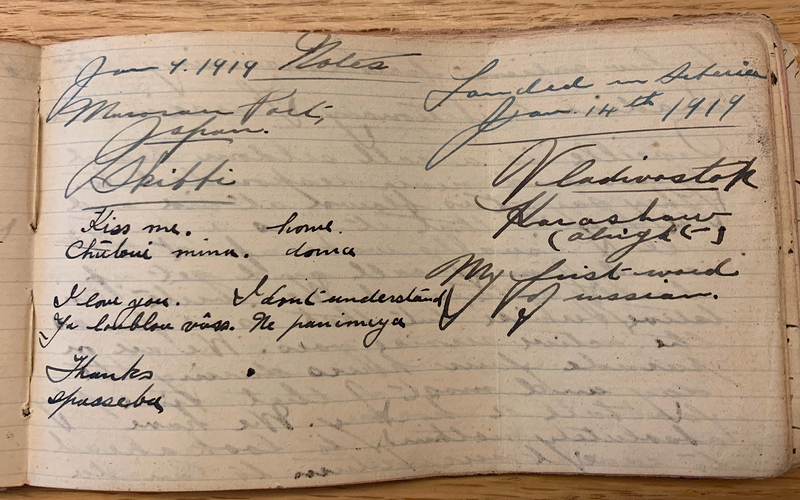 Notes
Jan 4. 1919
Muroran Port,
Japan.
Skibbi
Kiss me. home.
Chuloui mina. doma
I love you. I don't understand
Ya loublou vâss. Ne panimaya
Thanks
spasseba
Landed in Siberia
Jan. 14th 1919
Vladivostok
Harashaw
(alright)
My first word
of russian.